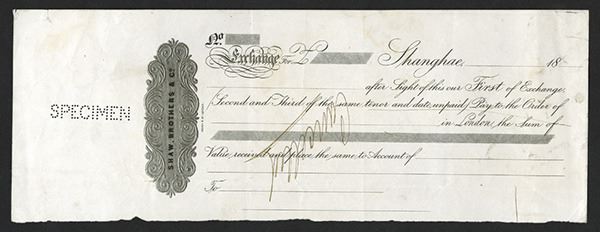 No.
Exchange For £ Shanghae, 18
after Sight of this our First of Exchange
(Second and Third of the same tenor and date, unpaid) Pay to the Order of
in London, the Sum of
Value received and place the same to Account of
To
SPECIMEN
SHAW, BROTHERS & Co